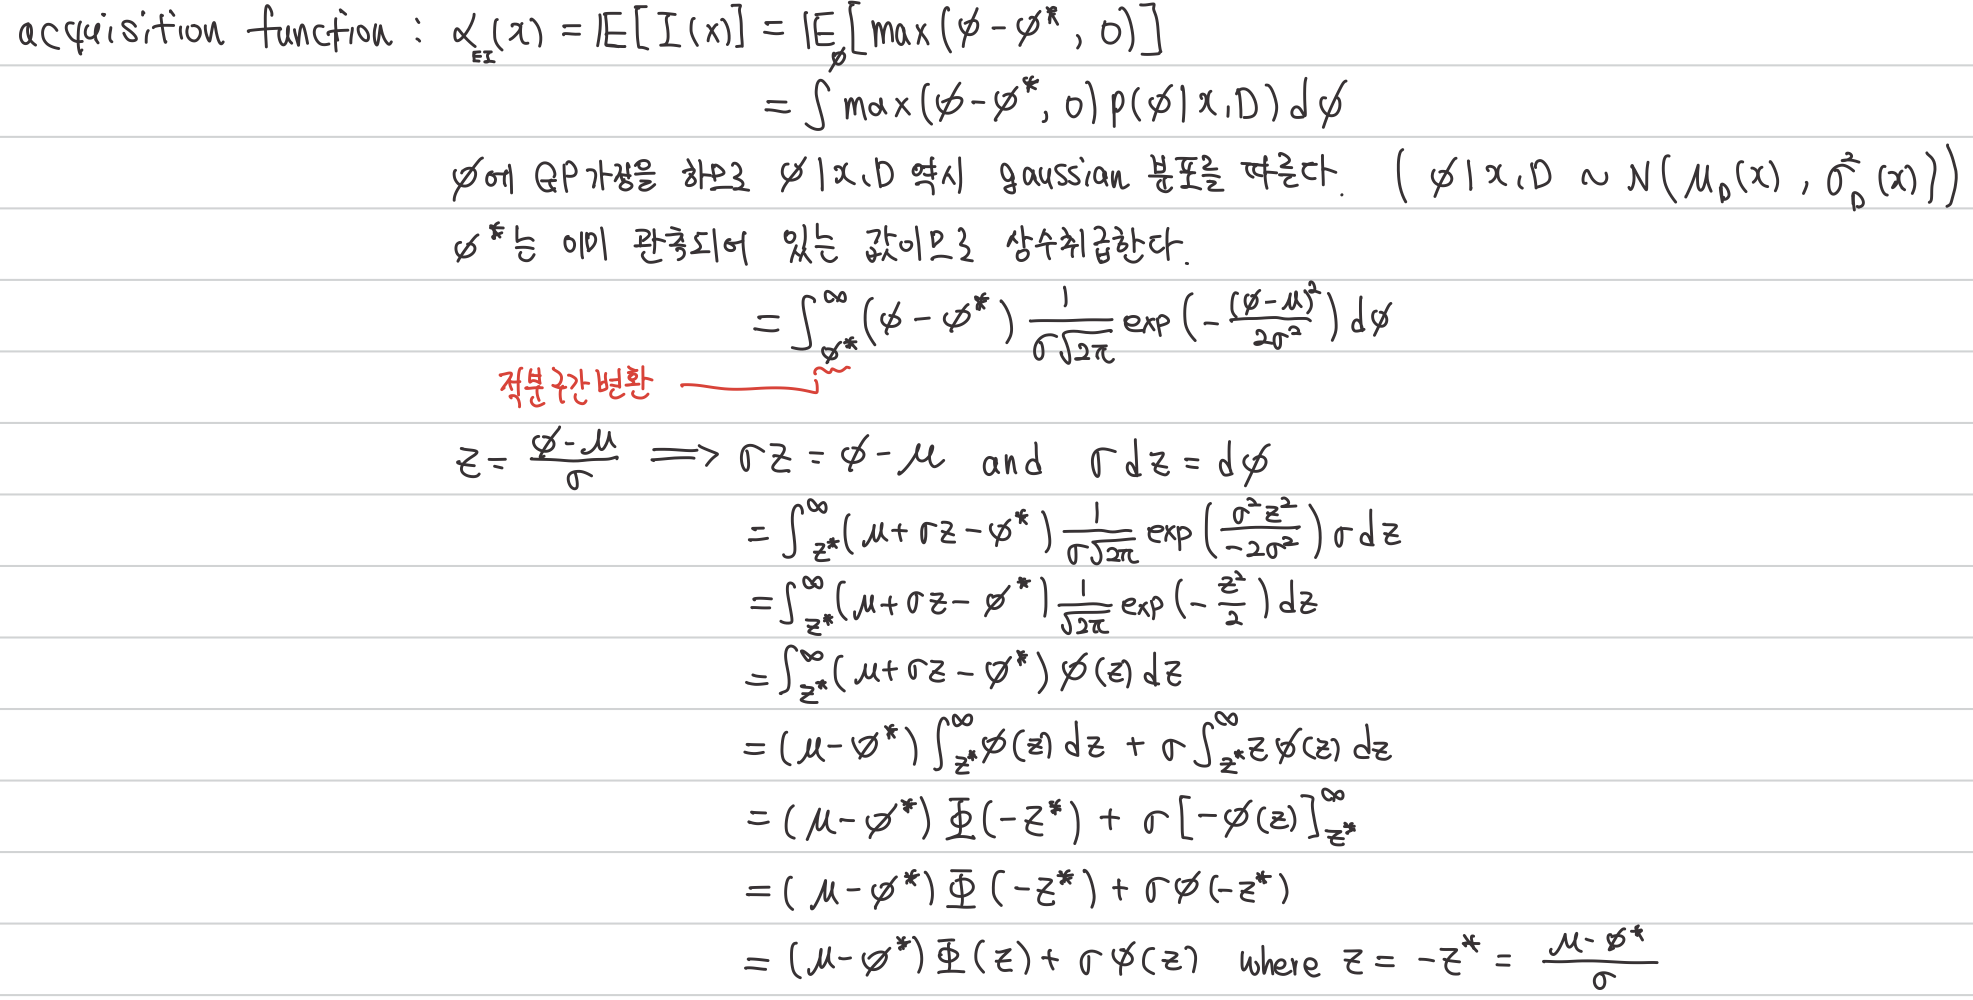 acquisition function : α_EI(x) = 𝔼[I(x)] = 𝔼_ϕ[max(ϕ-ϕ*, 0)]
= ∫ max(ϕ-ϕ*, 0) p(ϕ|x,D) dϕ
ϕ에 GP가정을 하므로 ϕ|x,D 역시 gaussian 분포를 따른다. (ϕ|x,D ~ N(μ_D(x), σ²_D(x)))
ϕ*는 이미 관측되어 있는 값이므로 상수취급한다.
= ∫_{ϕ*}^{∞} (ϕ-ϕ*) \frac{1}{σ√2π} exp(-\frac{(ϕ-μ)²}{2σ²}) dϕ
적분구간변환
z = \frac{ϕ-μ}{σ} ⟹ σz = ϕ-μ and σdz = dϕ
= ∫_{z*}^{∞} (μ+σz-ϕ*) \frac{1}{σ√2π} exp(\frac{σ²z²}{-2σ²}) σdz
= ∫_{z*}^{∞} (μ+σz-ϕ*) \frac{1}{√2π} exp(-\frac{z²}{2}) dz
= ∫_{z*}^{∞} (μ+σz-ϕ*) ϕ(z) dz
= (μ-ϕ*) ∫_{z*}^{∞} ϕ(z) dz + σ ∫_{z*}^{∞} zϕ(z) dz
= (μ-ϕ*) Φ(-z*) + σ[-ϕ(z)]_{z*}^{∞}
= (μ-ϕ*) Φ(-z*) + σϕ(-z*)
= (μ-ϕ*) Φ(z) + σϕ(z) where z = -z* = \frac{μ-ϕ*}{σ}